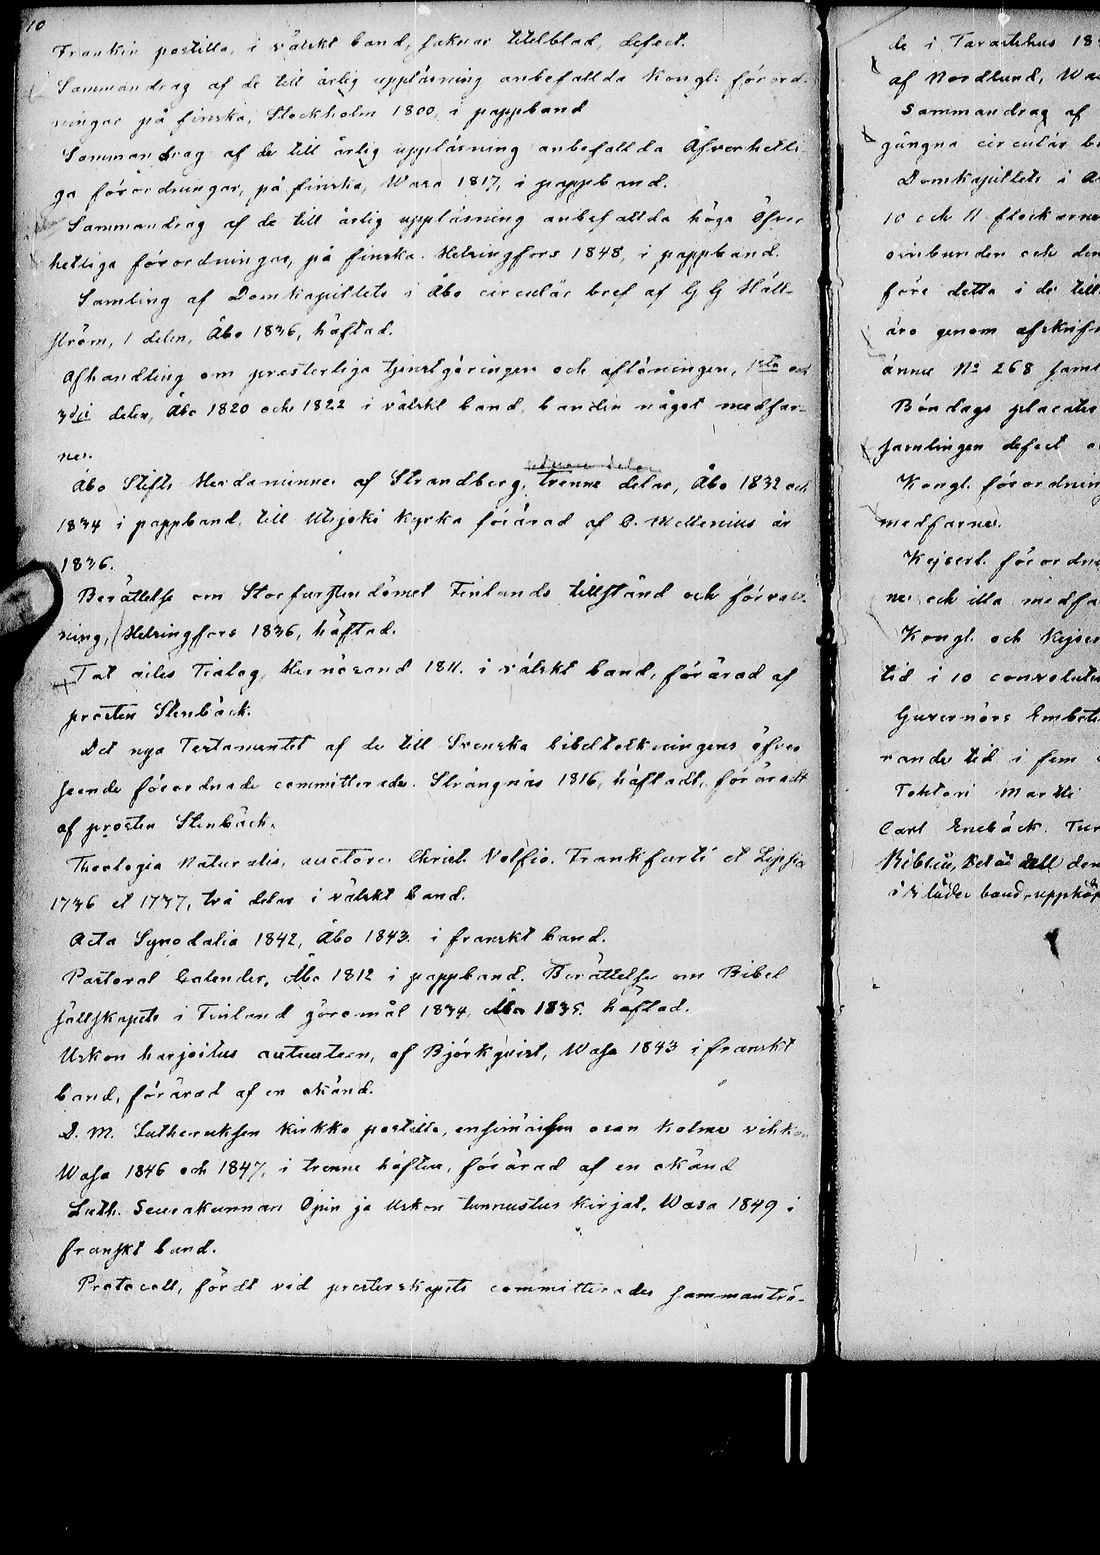 10
Frankin postilla, i välskt band, saknar titelblad, defect.
Sammandrag af de till årlig uppläsning anbefallda Kongl: förord-
ningar på finska, Stockholm 1800, i pappband
Sammandrag af de till årlig uppläsning anbefallda Öfverhetli-
ga förordningar, på finska, Wasa 1817, i pappband.
Sammandrag af de till årlig uppläsning anbefallda höga Öfver
hetliga förordningar, på finska. Helsingfors 1848, i pappband.
Samling af Domkapitlets i Åbo circulär bref af G G Häll-
ström, 1 delen, Åbo 1836, häftad.
Afhandling om presterliga tjenstgöringen och aflöningen, 1sta och
3dje delen, Åbo 1820 och 1822 i välskt band, banden något medfar-
ner.
Åbo Stifts Herdaminne af Strandberg, trenne delar, Åbo 1832 och
1834 i pappband, till Utsjoki Kyrka förärad af C. Wellenius år
1836.
Berättelse om Storfurstendömet Finlands tillstånd och förvalt-
ning, Helsingfors 1836, häftad.
Tat ailes Tialog, Hernösand 1811. i välskt band, förärad af
prosten Stenbäck.
Det nya Testamentet af de till Svenska bibeltolkningens öfver
seende förordnade committerade. Strängnäs 1816, häftadt, föräradt
af prosten Stenbäck.
Theologia Naturalis, auctore Christ. Volfio. Frankfurti et Lipsia
1736 et 1737, två delar i välskt band.
Acta Synodalia 1842, Åbo 1843. i franskt band.
Pastoral Calender, Åbo 1812 i pappband. Berättelse om Bibel
sällskapets i Finland göromål 1834, Åbo 1835. häftad.
Uskon harjoitus autuuteen, af Björkqvist, Wasa 1843 i franskt
band, förärad af en okänd.
D. M. Lutheruksen Kirkko postilla, ensimäisen osan kolme vihkoa
Wasa 1846 och 1847, i trenne häften, förärad af en okänd
Luth. Seurakunnan Opin ja Uskon tunnustus kirjat. Wasa 1849 i
franskt band.
Protocoll, fördt vid presterskapets committerades sammanträ-
de i Tavastehus 18
af Nordlund, Wa
Sammandrag af
gångna circulär b
Domkapitlets i
10 och 11 flockarne
oinbunden och den
före detta i de till
äro genom afskrif
ännu No 268 saml
Böndags placater
samlingen defect
Kongl. förordnin
medfarne.
Kejserl. förordn
ne och illa medfa
Kongl. och Kejser
tid i 10 convoluter
Guvernörs Embets
rande tid i fem
Tohtori Martti
Carl Enebäck. Tur
Biblia, det är all den
i läder band, uppköp